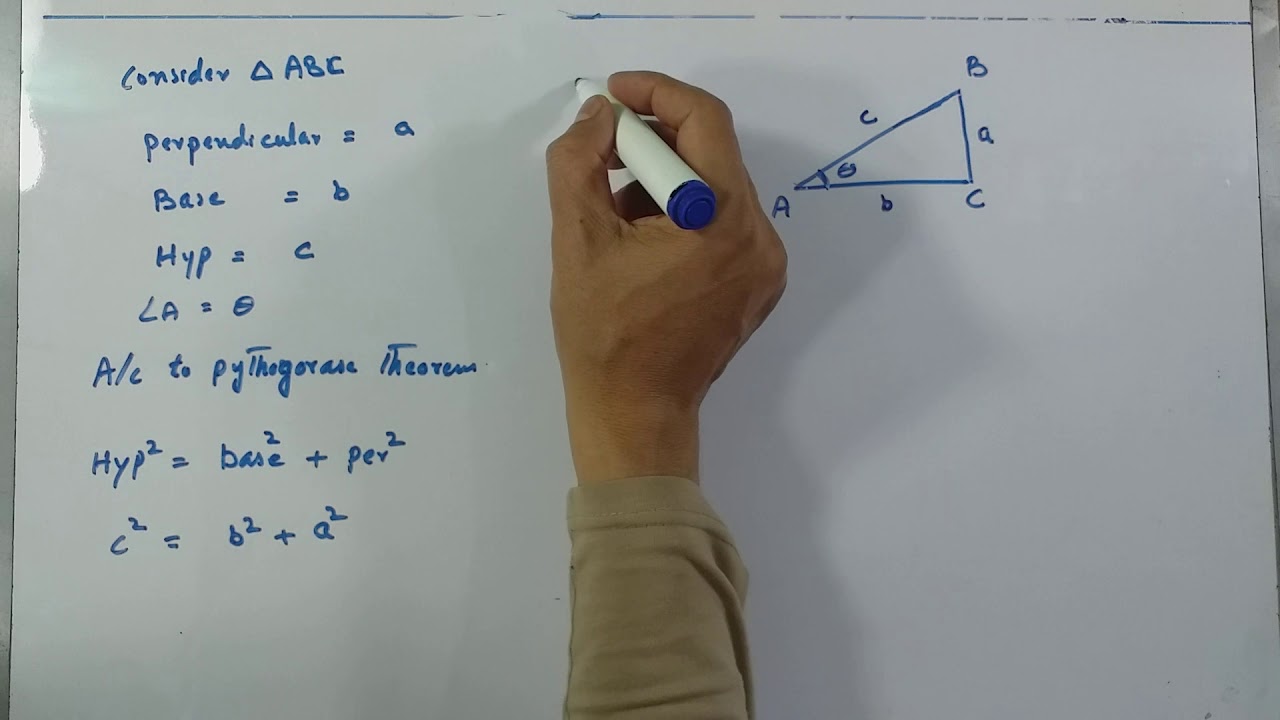 Consider △ ABC
perpendicular = a
Base = b
Hyp = c
∠A = θ
A/c to pythogorase Theorem
Hyp² = base² + per²
c² = b² + a²
B
c
a
θ
A
b
C